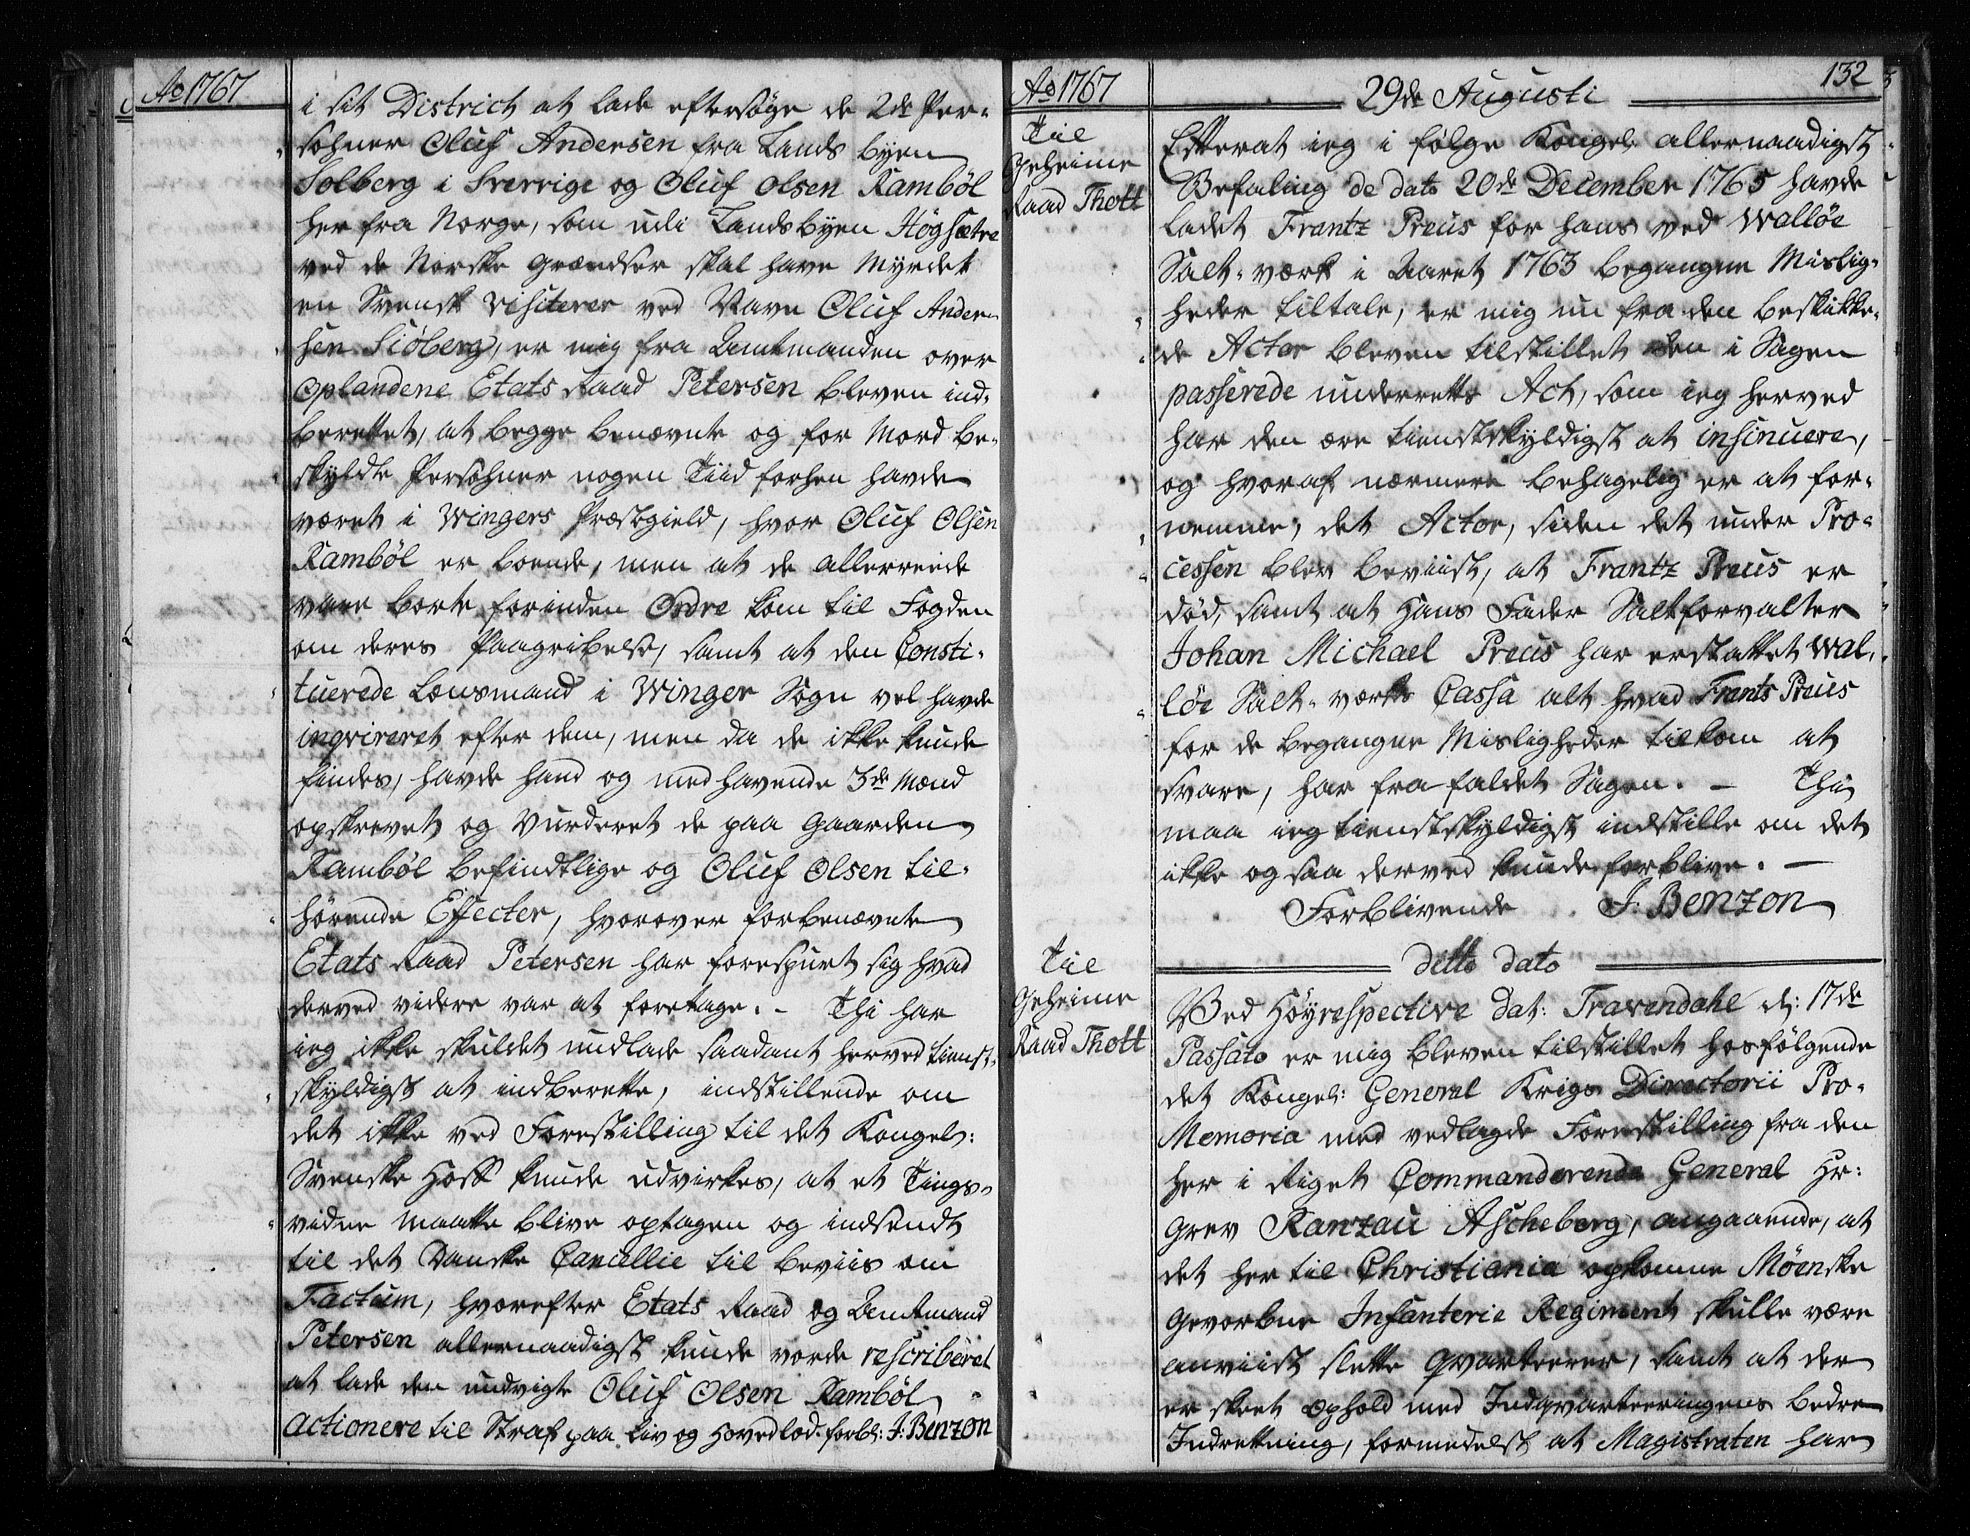 Ao 1767
i sit District at lade eftersøge de 2de Per-
sohner Oluf Andersen fra Lands byen
Solberg i Sverrige og Oluf Olsen Rambøl
her fra Norge, som udi Landsbyen Høgsætre
ved de Norske Grændser skal have Myrdet
en Svensk Visiterer ved Navn Oluf Ander-
sen Siøberg, er mig fra Amtmanden over
Oplandene Etats Raad Petersen bleven ind-
berettet, at begge benævnte og for Mord be-
skyldte Persohner nogen Tiid forhen havde
været i Wingers Præstegield, hvor Oluf Olsen
Rambøl er boende, men at de allerreede
vare borte forinden Ordre kom til Fogden
om deres Paagribelse, samt at den Consti-
tuerede Lensmand i Winger Sogn vel havde
inqvireret efter dem, men da de ikke kunde
findes, havde hand og medhavende 3de Mænd
opskrevet og vurderet de paa Gaarden
Rambøl befindtlige og Oluf Olsen til-
hørende Effecter, hvorover forbenævnte
Etats Raad Petersen har forespurt sig hvad
derved videre var at foretage. - Thi har
ieg ikke skuldet undlade saadant herved tienst-
skyldigst at indberette, indstillende om
det ikke ved Forestilling til det Kongel:
Svenske Hoff kunde udvirkes, at et Tings-
vidne maatte blive optagen og indsendt
til det Danske Cancellie til beviis om
Factum, hvorefter Etats Raad og Amtmand
Petersen allernaadigst kunde vorde rescriberet
at lade den undvigte Oluf Olsen Rambøl
actionere til Straf paa Liv og Hovedlod. forbl: J: Benzon
Ao 1767
132
29de Augusti
Tiil
Geheime
Raad Thott
Efterat ieg i følge Kongel: allernaadigst
Befaling de dato 20de December 1765 havde
ladet Frantz Preus for hans ved Walløe
Salt-værk i Aaret 1763 begangne Mislig-
heder tiltale, er mig nu fra den beskikke-
de Actor bleven tilstillet den i Sagen
passerede underretts Act, som ieg herved
har den ære tienstskyldigst at insinuere,
og hvoraf nærmere behagelig er at for-
nemme, det Actor, siden det under Pro-
cessen blev beviist, at Frantz Preus er
død, samt at Hans Fader Saltforvalter
Johan Michael Preus har erstattet Wal-
løe Salt-værks Cassa alt hvad Frants Preus
for de begangne Misligheder tilkom at
svare, har frafaldet Sagen. - Thi
maa ieg tienstskyldigst indstille om det
ikke og saa derved kunde forblive. -
Forblivende J: Benzon
ditto dato
Tiil
Geheime
Raad Thott
Ved Høyrespective dat: Travendahl d: 17de
Passato er mig bleven tilstillet hosfølgende
det Kongel: General Krigs Directorii Pro-
Memoria med vedlagde Forestilling fra den
her i Riget Commanderende General Hr:
Grev Ranzau Ascheberg, angaaende, at
det her til Christiania opkomne Møenske
Gevorbne Infanterie Regiment skulle være
anviist slette Qvarteerer, samt at der
er skeet ophold med Indqvarteeringens bedre
Indrettning, formedelst at Magistraten har